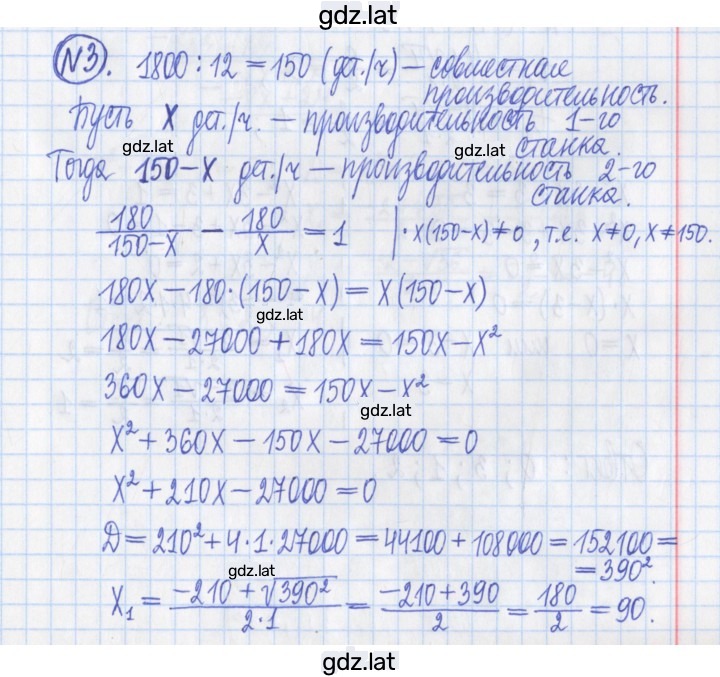 gdz.lat
№3. 1800 : 12 = 150 (дет./ч) — совместная
производительность.
Пусть х дет./ч. — производительность 1-го
станка.
gdz.lat
gdz.lat
Тогда 150-х дет./ч — производительность 2-го
станка.
180/(150-х) - 180/х = 1 | · х(150-х)≠0, т.е. х≠0, х≠150.
180х - 180·(150-х) = х(150-х)
gdz.lat
180х - 27000 + 180х = 150х - х²
360х - 27000 = 150х - х²
gdz.lat
х² + 360х - 150х - 27000 = 0
х² + 210х - 27000 = 0
Д = 210² + 4·1·27000 = 44100 + 108000 = 152100 =
= 390².
gdz.lat
х₁ = (-210 + √390²)/(2·1) = (-210+390)/2 = 180/2 = 90.
gdz.lat